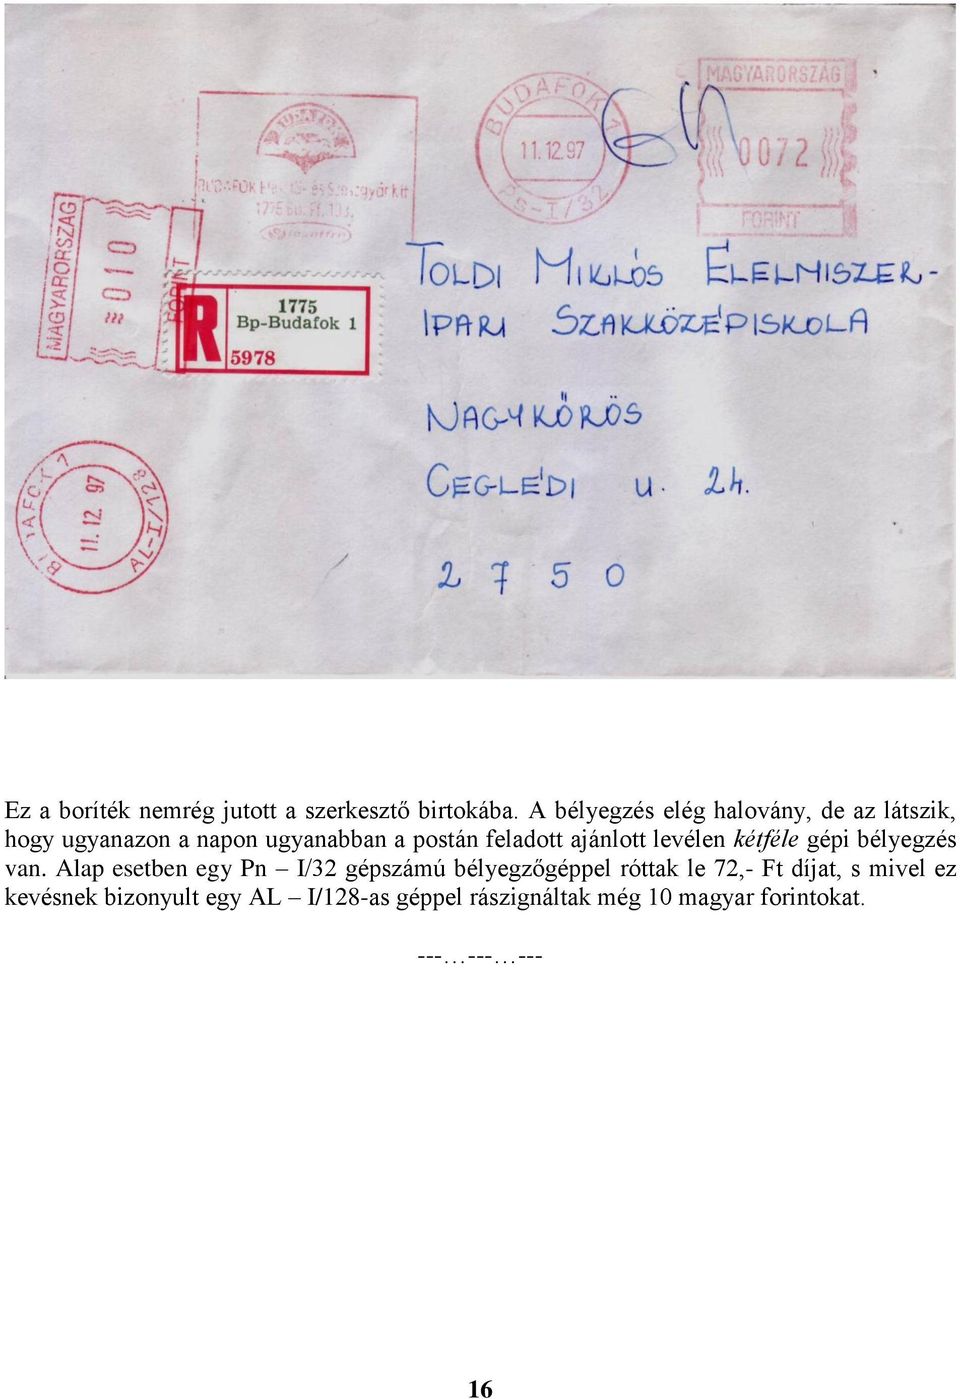 MAGYARORSZÁG
BUDAFOK 1
11.12.97
Ps-I/32
0072
FORINT
1775 Bp. Pf.
MAGYARORSZÁG
010
FORINT
R
1775
Bp-Budafok 1
5978
TOLDI MIKLÓS ÉLELMISZER-
IPARI SZAKKÖZÉPISKOLA
NAGYKŐRÖS
CEGLÉDI u. 24.
2750
11.12.97
AL-I/128
Ez a boríték nemrég jutott a szerkesztő birtokába. A bélyegzés elég halovány, de az látszik,
hogy ugyanazon a napon ugyanabban a postán feladott ajánlott levélen kétféle gépi bélyegzés
van. Alap esetben egy Pn – I/32 gépszámú bélyegzőgéppel róttak le 72,- Ft díjat, s mivel ez
kevésnek bizonyult egy AL – I/128-as géppel rászignáltak még 10 magyar forintokat.
---…---…---
16